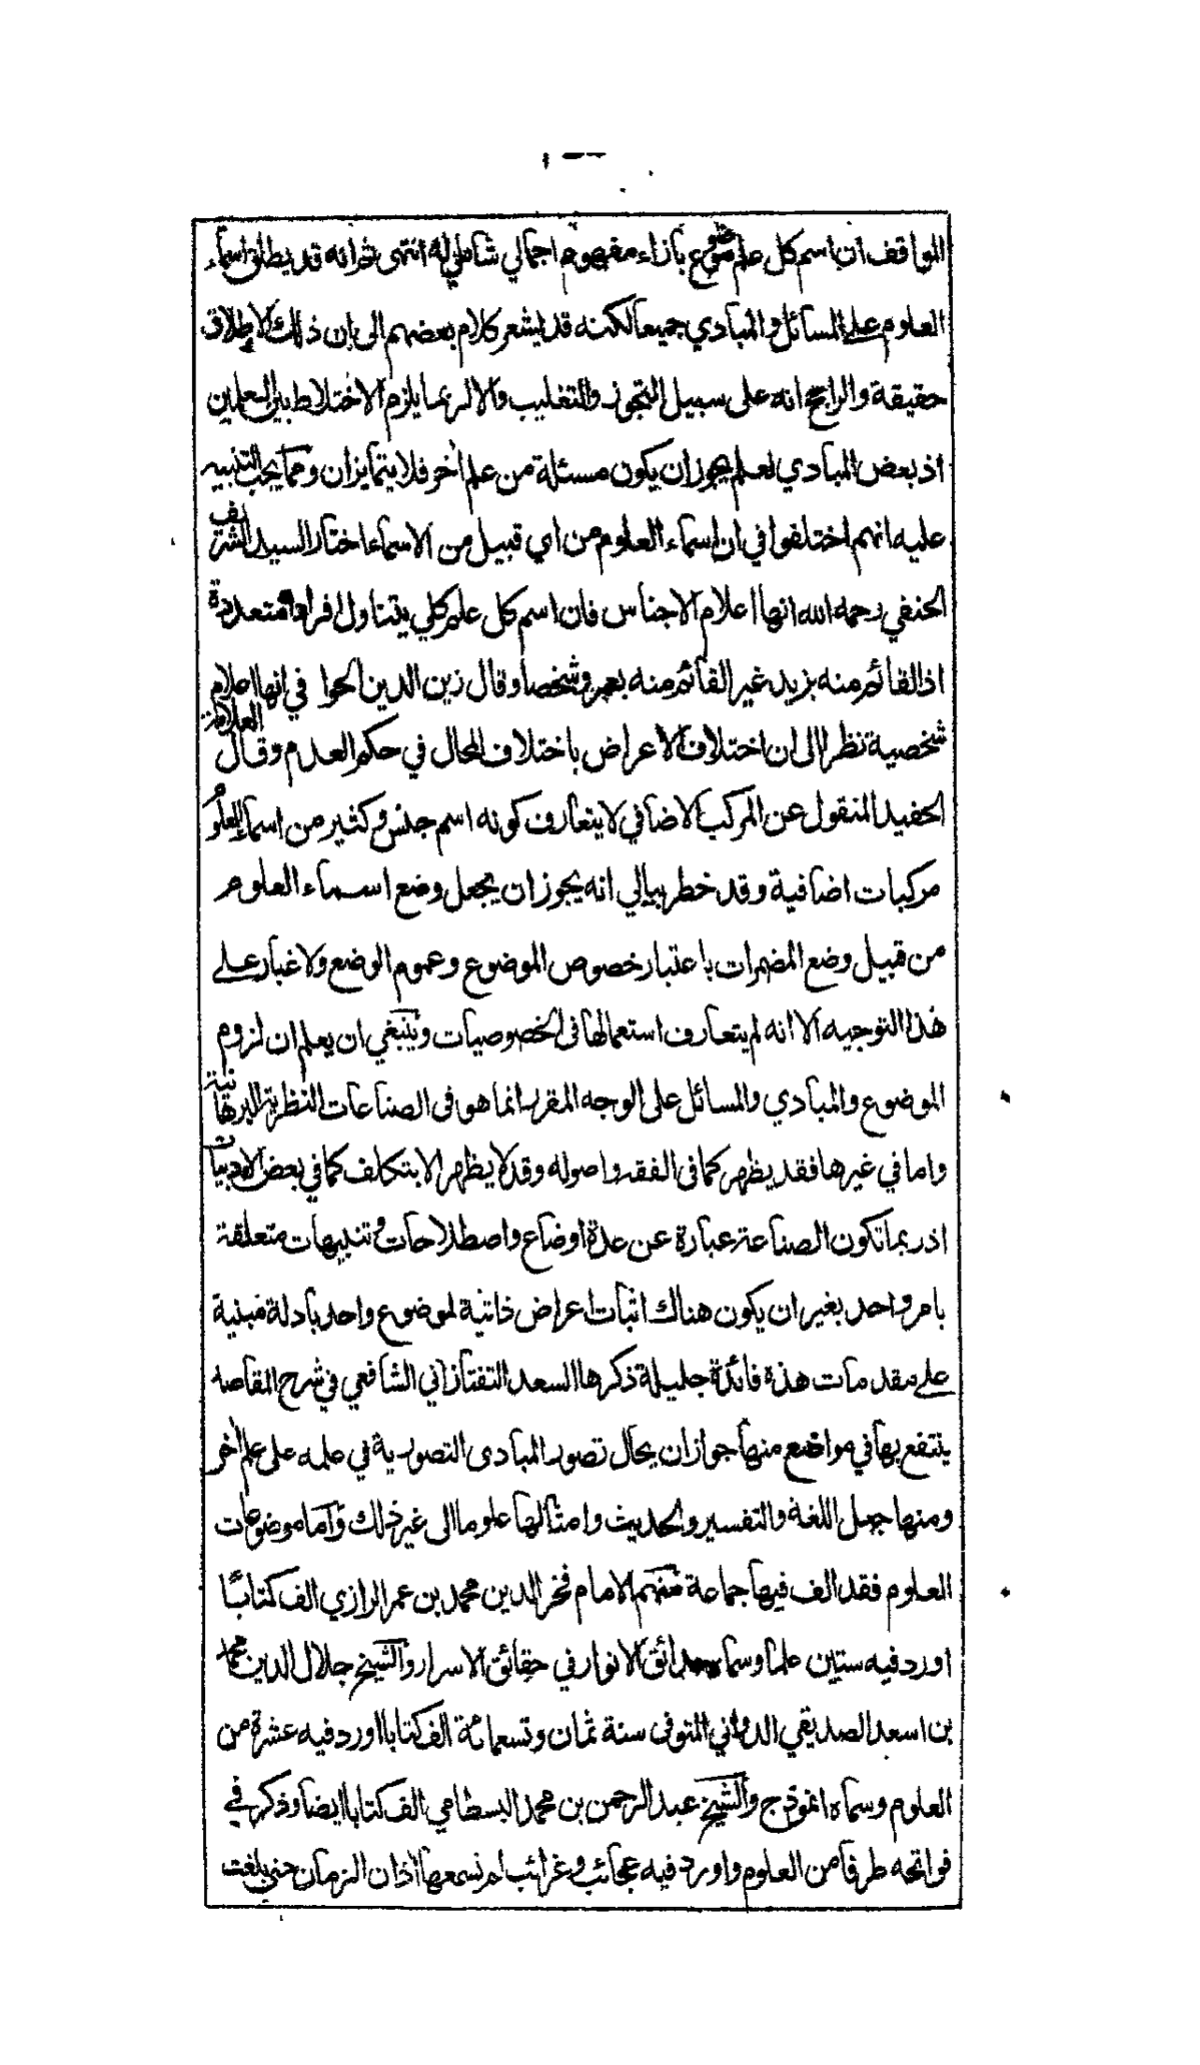 المواقف ان اسم كل علم موضوع بازاء مفهوم اجمالي شامل له انتهى ثم انه قد يطلق اسماء
العلوم على المسائل والمبادي جميعا لكنه قد يشعر كلام بعضهم الى ان ذلك الاطلاق
حقيقة والراجح انه على سبيل التجوز والتغليب والا لربما يلزم الاختلاط بين العلمين
اذ بعض المبادي لعلم يجوز ان يكون مسئلة من علم اخر فلا يتمايزان ومما يجب التنبيه
عليه انهم اختلفوا في ان اسماء العلوم من اي قبيل من الاسماء اختار السيد الشريف
الحنفي رحمه الله انها اعلام الاجناس فان اسم كل علم كلي يتناول افرادا متعددة
اذ القائم منه بزيد غير القائم منه بعمرو شخصا وقال زين الدين الحوا في انها اعلام
شخصية نظرا الى ان اختلاف الاعراض باختلاف المحال في حكم العدم وقال العلامة
الحفيد المنقول عن المركب الاضافي لا يتعارف كونه اسم جنس وكثير من اسماء العلوم
مركبات اضافية وقد خطر ببالي انه يجوز ان يجعل وضع اسماء العلوم
من قبيل وضع المضمرات باعتبار خصوص الموضوع وعموم الوضع ولا غبار على
هذا التوجيه الا انه لم يتعارف استعمالها في الخصوصيات وينبغي ان يعلم ان لزوم
الموضوع والمبادي والمسائل على الوجه المقرر انما هو في الصناعات النظرية البرهانية
واما في غيرها فقد يظهر كما في الفقه واصوله وقد لا يظهر الا بتكلف كما في بعض الادبيات
اذ ربما تكون الصناعة عبارة عن عدة اوضاع واصطلاحات وتنبيهات متعلقة
بامر واحد بغير ان يكون هناك اثبات اعراض ذاتية لموضوع واحد بادلة مبنية
على مقدمات هذه فائدة جليلة ذكرها السعد التفتازاني الشافعي في شرح المقاصد
ينتفع بها في مواضع منها جواز ان يحال تصور المبادى التصورية في علم على علم اخر
ومنها جعل اللغة والتفسير والحديث وامثالها علوما الى غير ذلك واما موضوعات
العلوم فقد الف فيها جماعة منهم الامام فخر الدين محمد بن عمر الرازي الف كتابًا
اورد فيه ستين علما وسماه حدائق الانوار في حقائق الاسرار والشيخ جلال الدين محمد
بن اسعد الصديقي الدواني المتوفى سنة ثمان وتسعمائة الف كتابا اورد فيه عشرة من
العلوم وسماه انموذج والشيخ عبد الرحمن بن محمد البسطامي الف كتابا ايضا وذكر في
فواتحه طرفا من العلوم واورد فيه عجائب وغرائب لم تسمعها اذان الزمان حتى بلغت